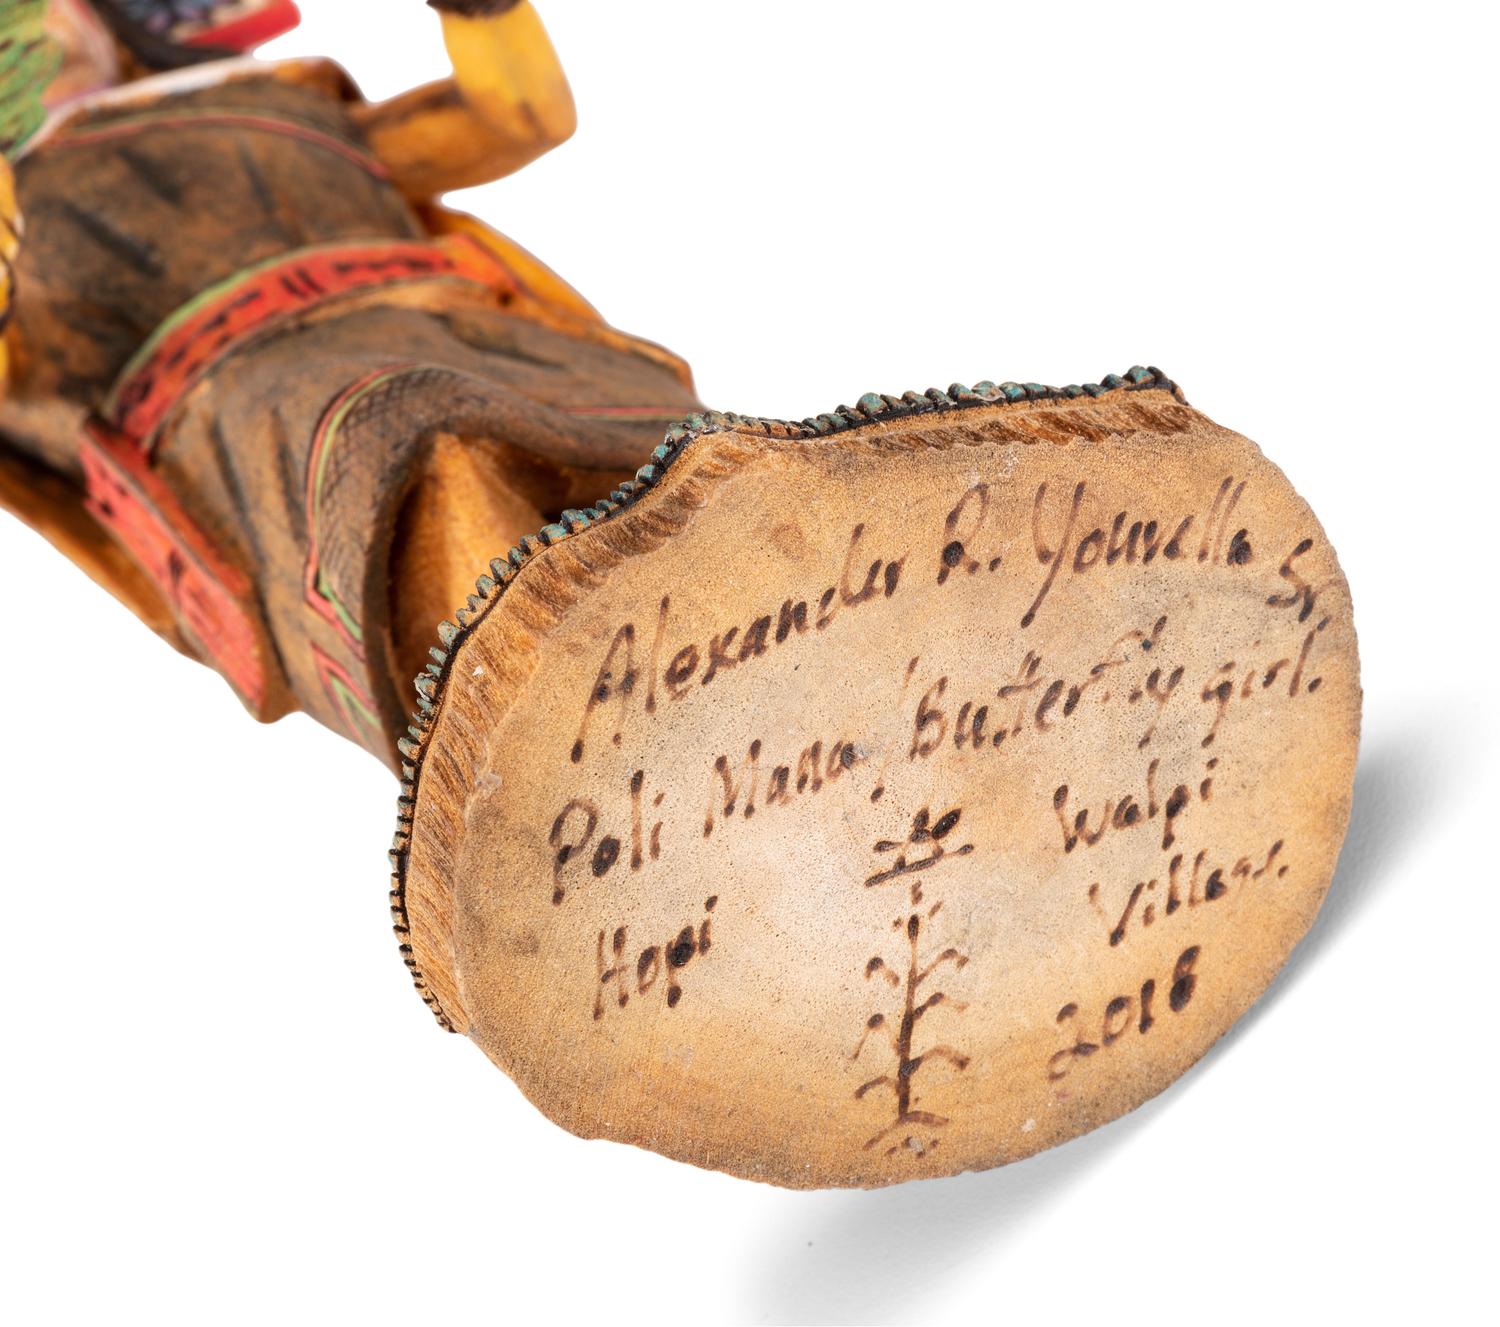 Alexander R. Youvella Sr.
Poli Mana / Butterfly girl.
Hopi Walpi
Village.
2018